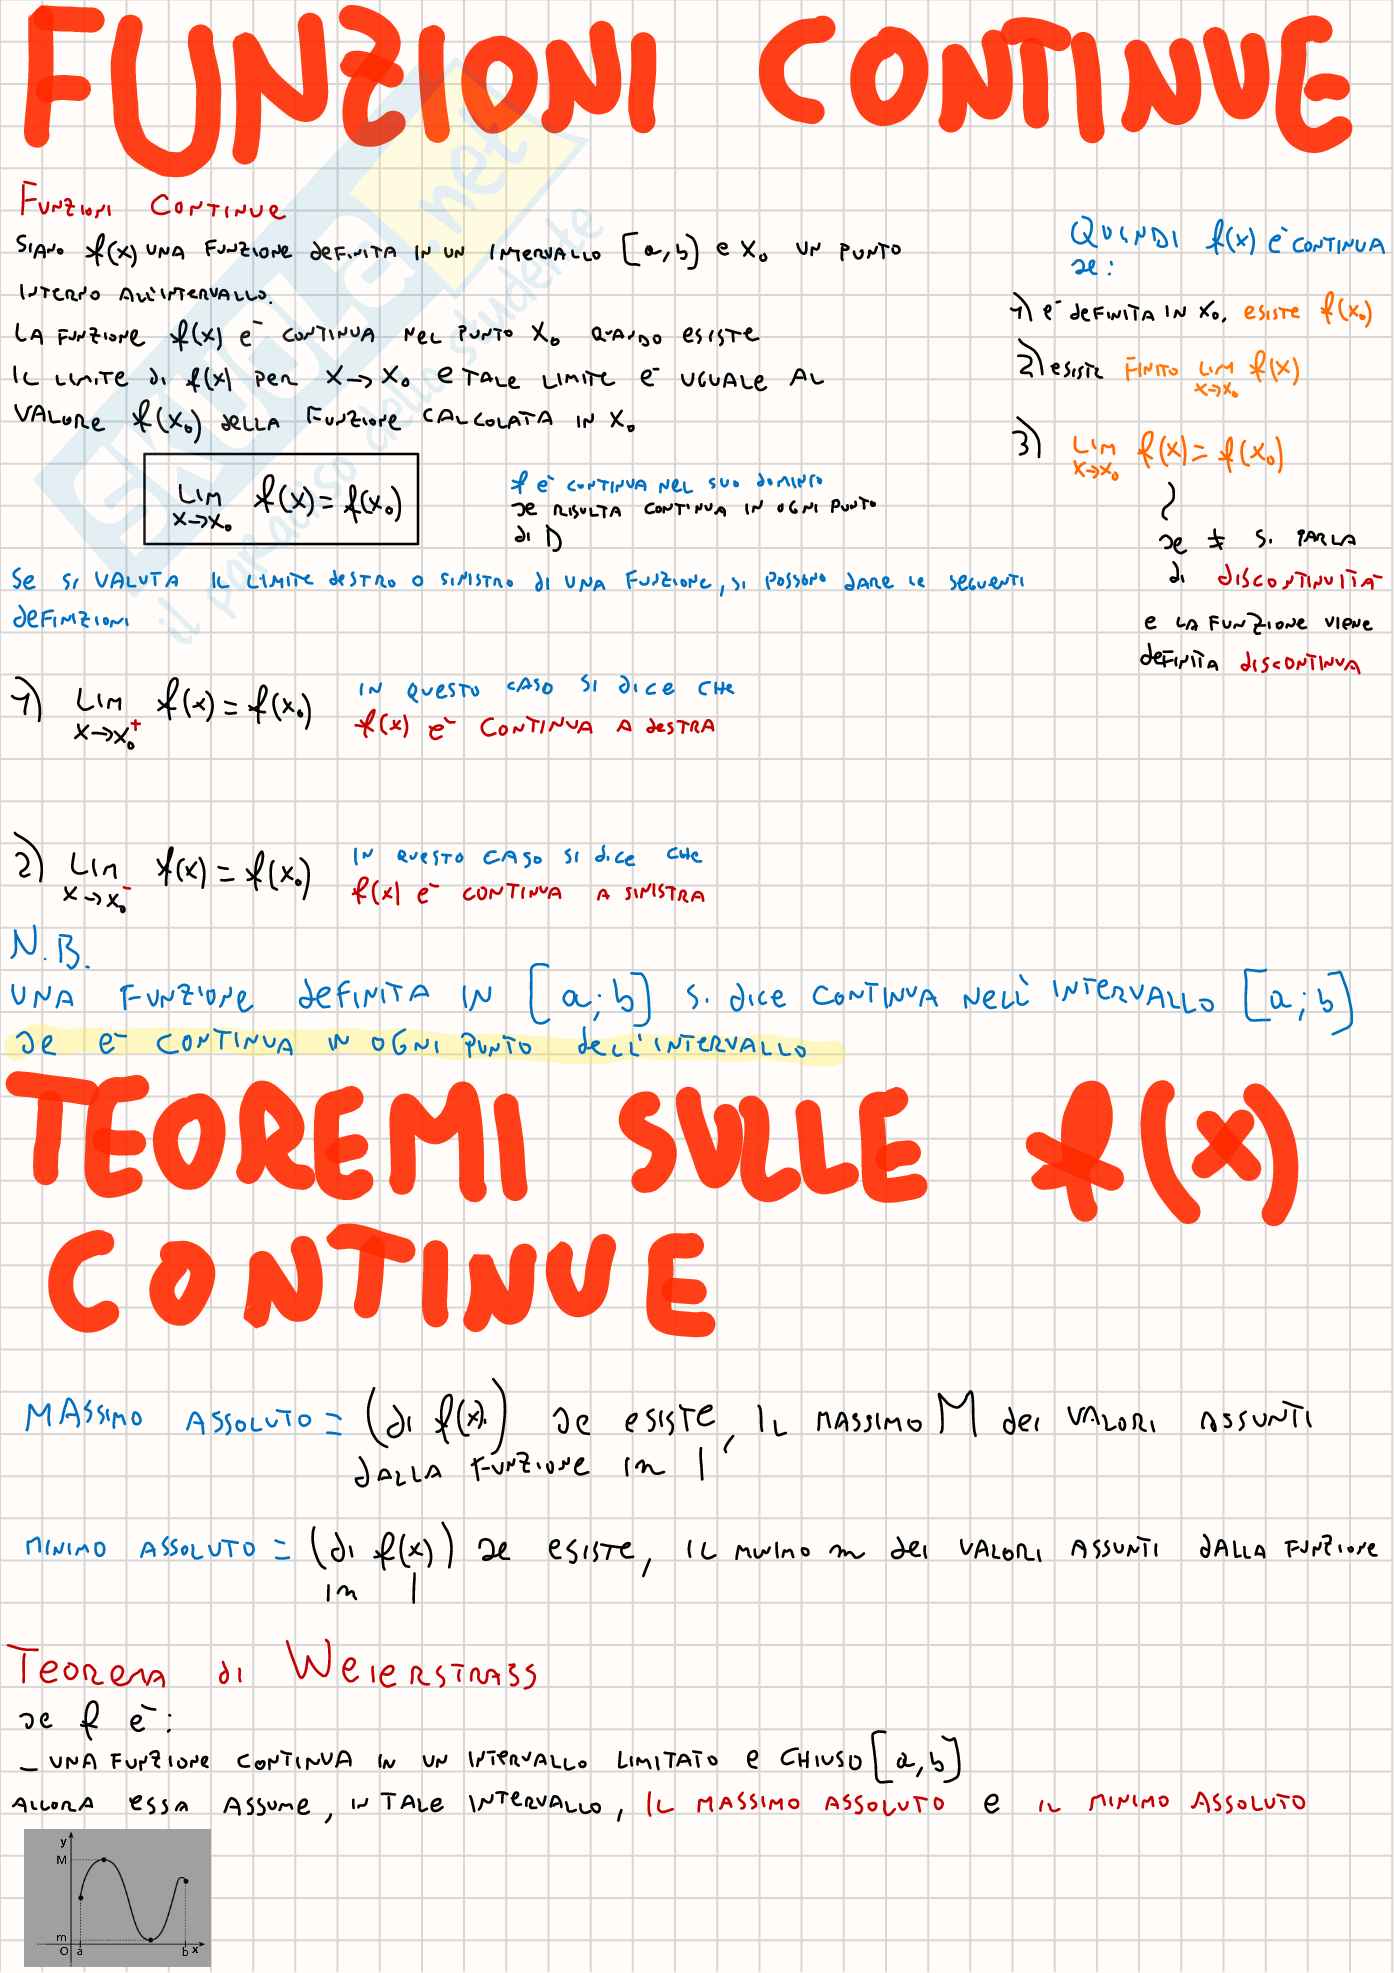 FUNZIONI CONTINUE
FUNZIONI CONTINUE
SIANO f(x) UNA FUNZIONE DEFINITA IN UN INTERVALLO [a,b] E X₀ UN PUNTO
INTERNO ALL'INTERVALLO.
LA FUNZIONE f(x) È CONTINUA NEL PUNTO X₀ QUANDO ESISTE
IL LIMITE DI f(x) PER X→X₀ E TALE LIMITE È UGUALE AL
VALORE f(X₀) DELLA FUNZIONE CALCOLATA IN X₀
LIM f(x) = f(x₀)
X→X₀
f È CONTINUA NEL SUO DOMINIO
SE RISULTA CONTINUA IN OGNI PUNTO
DI D
QUINDI f(x) È CONTINUA
SE:
1) È DEFINITA IN X₀, ESISTE f(x₀)
2) ESISTE FINITO LIM f(x)
X→X₀
3) LIM f(x) = f(x₀)
X→X₀
SE ≠ SI PARLA
DI DISCONTINUITÀ
E LA FUNZIONE VIENE
DEFINITA DISCONTINUA
SE SI VALUTA IL LIMITE DESTRO O SINISTRO DI UNA FUNZIONE, SI POSSONO DARE LE SEGUENTI
DEFINIZIONI
1) LIM f(x) = f(x₀) IN QUESTO CASO SI DICE CHE
X→X₀⁺ f(x) È CONTINUA A DESTRA
2) LIM f(x) = f(x₀) IN QUESTO CASO SI DICE CHE
X→X₀⁻ f(x) È CONTINUA A SINISTRA
N.B.
UNA FUNZIONE DEFINITA IN [a;b] SI DICE CONTINUA NELL'INTERVALLO [a;b]
SE È CONTINUA IN OGNI PUNTO DELL'INTERVALLO
TEOREMI SULLE f(x)
CONTINUE
MASSIMO ASSOLUTO = (DI f(x)) SE ESISTE, IL MASSIMO M DEI VALORI ASSUNTI
DALLA FUNZIONE IN I
MINIMO ASSOLUTO = (DI f(x)) SE ESISTE, IL MINIMO m DEI VALORI ASSUNTI DALLA FUNZIONE
IN I
TEOREMA DI WEIERSTRASS
SE f È:
- UNA FUNZIONE CONTINUA IN UN INTERVALLO LIMITATO E CHIUSO [a,b]
ALLORA ESSA ASSUME, IN TALE INTERVALLO, IL MASSIMO ASSOLUTO E IL MINIMO ASSOLUTO
y
M
m
O a b x
SKUOLA.net
il paradiso dello studente